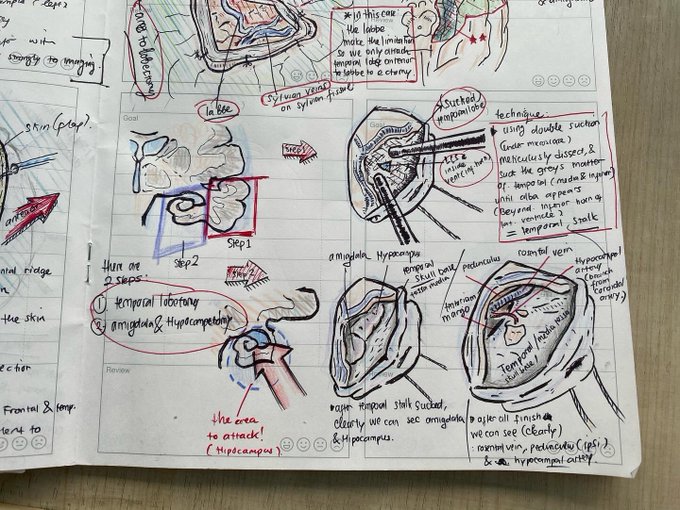 with
strongly to imaging.
lobe to lobectomy
* In this case
the labbe
make the limitation
so we only attach
temporal lobe anterior
to labbe to ectomy
Review
labbe
Sylvian veins
on sylvian fissure
skin (flap).
anterior
ridge
in
the skin
ection
Frontal & temp.
to
Goal
Step 1
Step 2
Step 1
there are
2 steps:
① temporal lobotomy
② amigdala & Hypocampectomy
Step
Review
the area
to attack!
(Hipocampus)
Goal
* Sucked
temporal lobe
inside
technique:
* using double suction
(under microscope)
meticulously dissect, &
suck the greys matter
of temporal (media & inferior)
until alba appears
(Beyond inferior horn of
lat. ventricle)
= temporal stalk
amigdala
Hypocampus
temporal
skull base
fossa media
pedunculus
rosental vein
Hypocampal
artery
(branch
from
coroidal
artery)
tentorium
margo
Temporal/media
skull base/
* after temporal stalk sucked,
clearly we can see amigdala
& Hipocampus.
* after all finish
we can see (clearly)
: rosental vein, pedunculus (ipsi)
& hypocampal artery